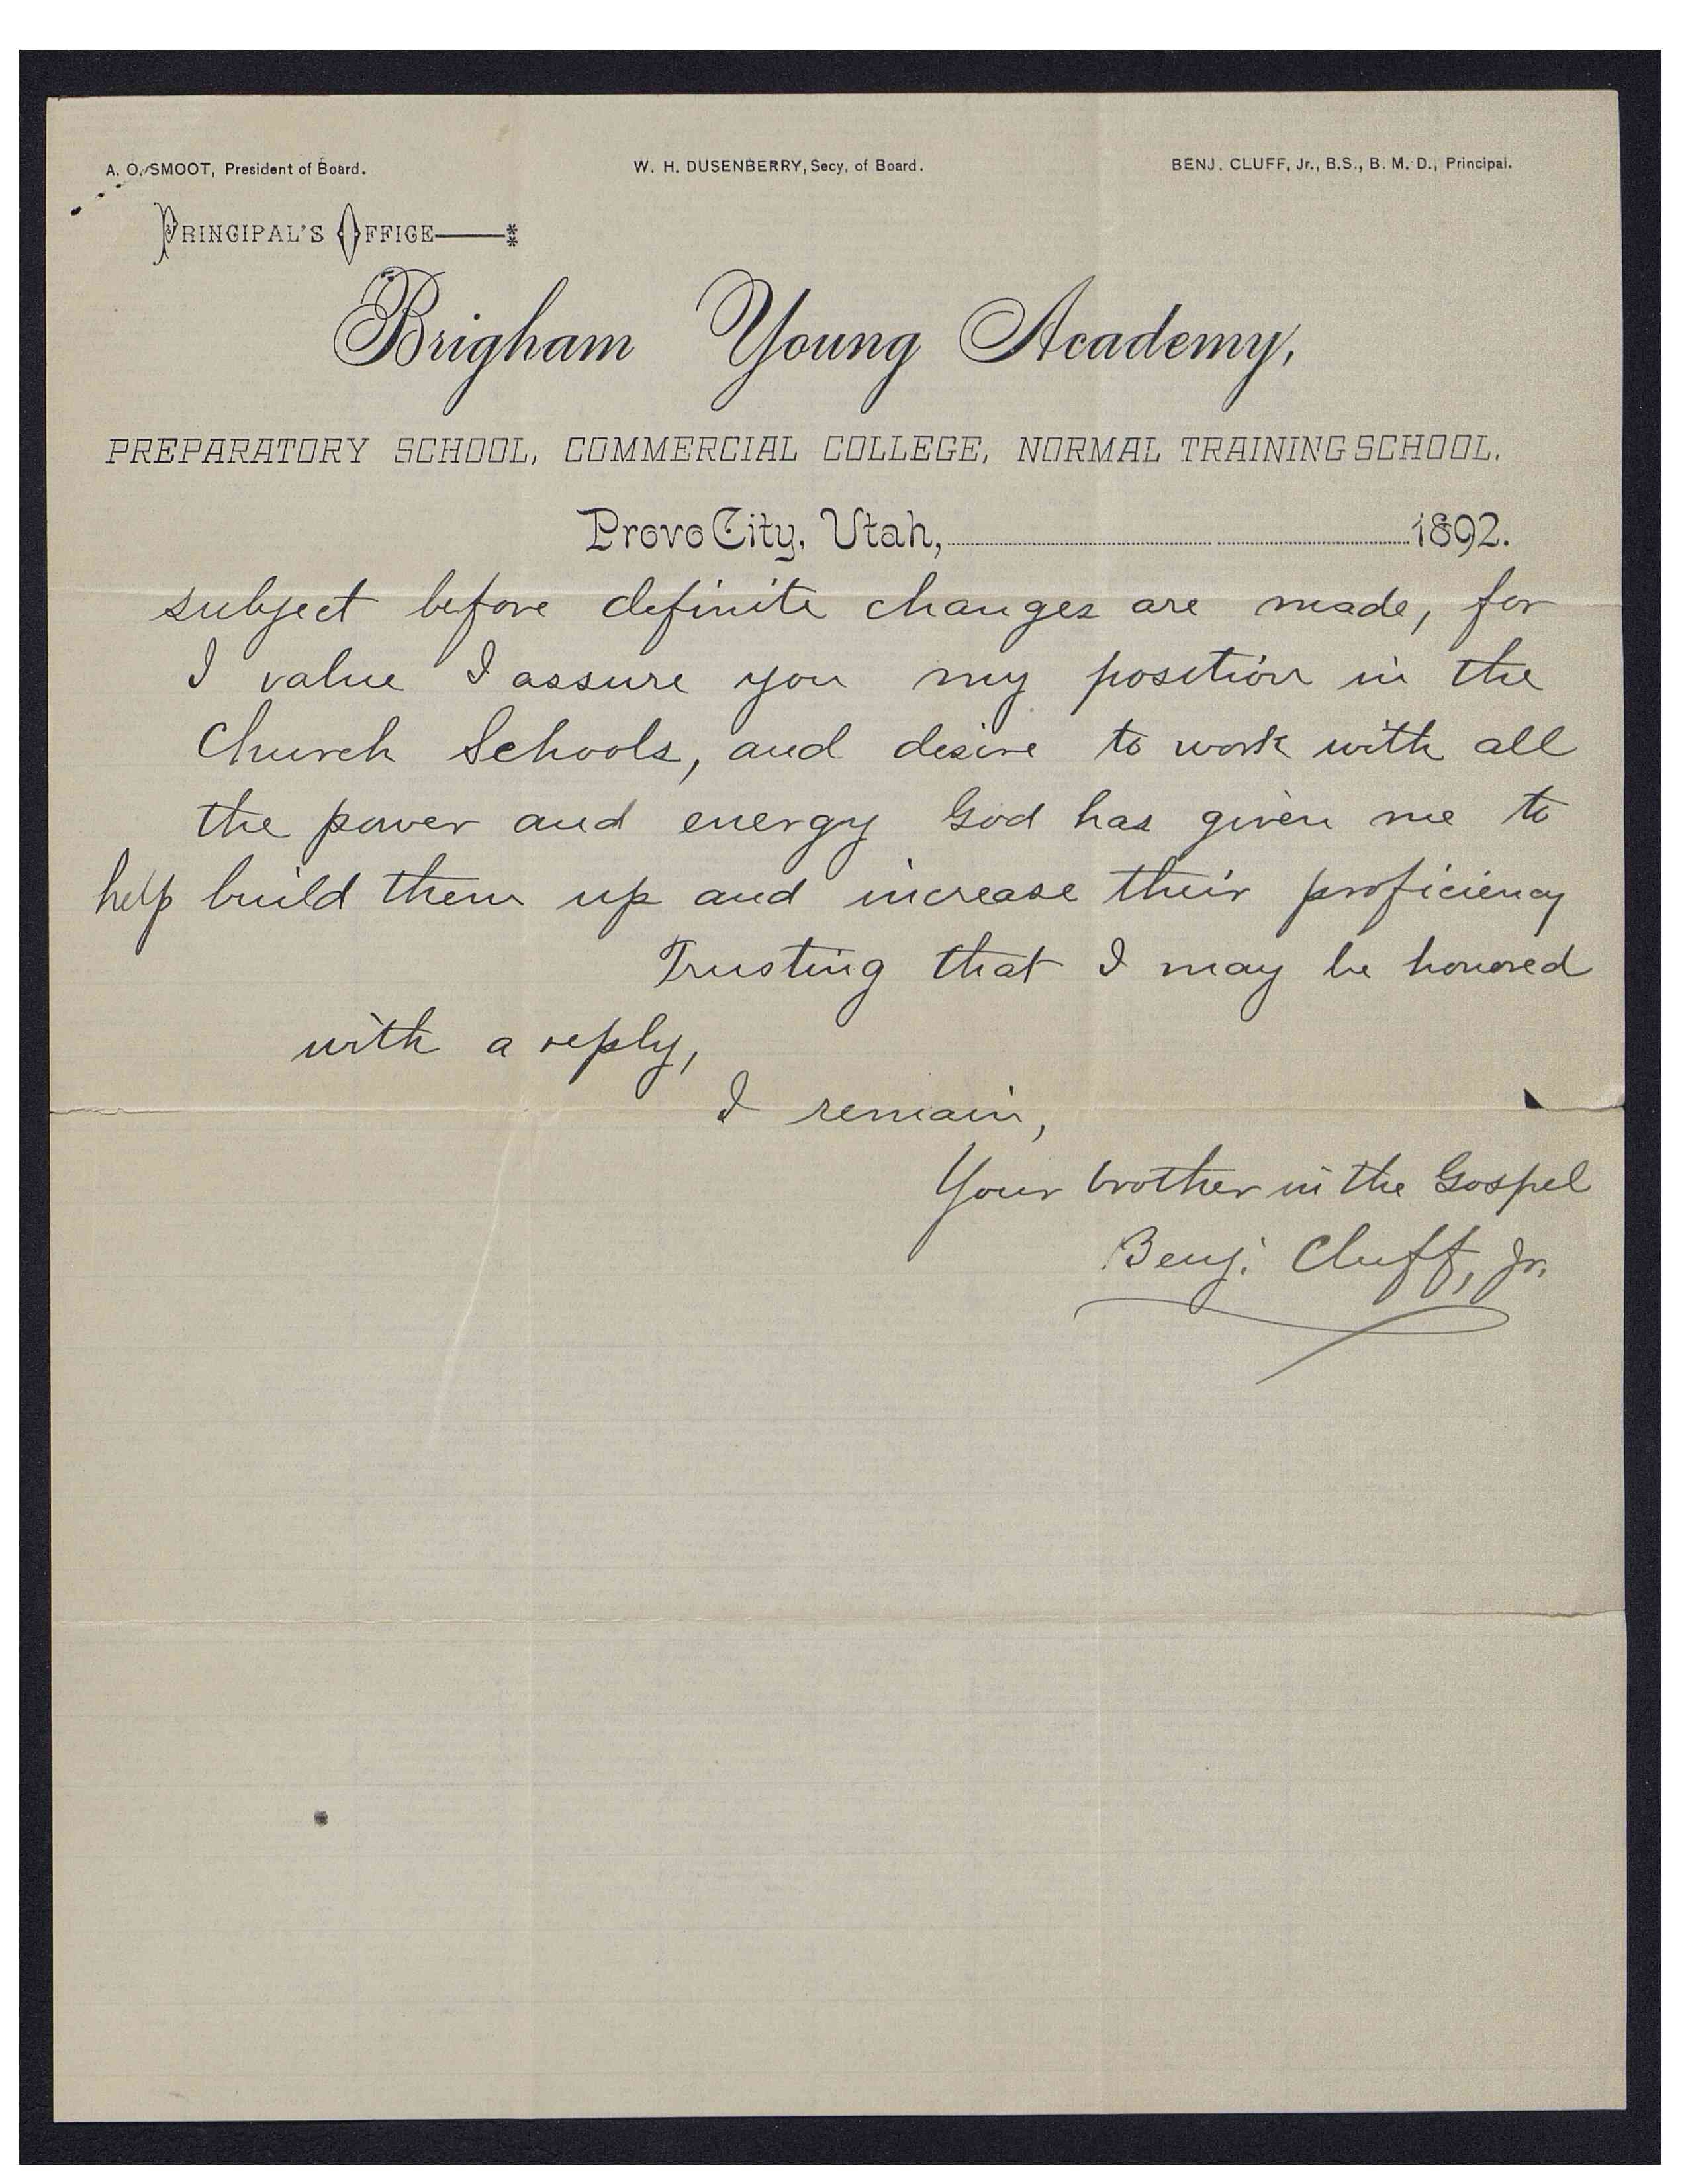 A. O. SMOOT, President of Board. W. H. DUSENBERRY, Secy. of Board. BENJ. CLUFF, Jr., B.S., B. M. D., Principal.
PRINCIPAL'S OFFICE
Brigham Young Academy,
PREPARATORY SCHOOL, COMMERCIAL COLLEGE, NORMAL TRAINING SCHOOL.
Provo City, Utah, 1892.
subject before definite changes are made, for
I value I assure you my position in the
Church Schools, and desire to work with all
the power and energy God has given me to
help build them up and increase their proficiency
Trusting that I may be honored
with a reply,
I remain,
Your brother in the Gospel
Benj. Cluff, Jr.